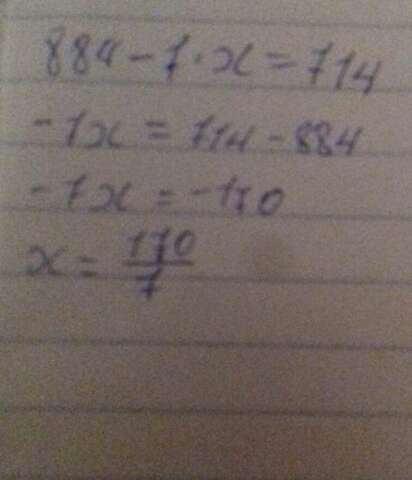 884 - 7 · x = 714
-7x = 714 - 884
-7x = -170
x = 170/7